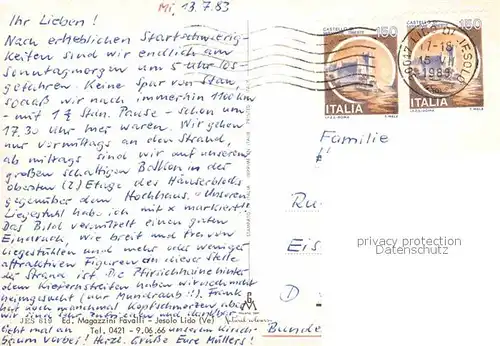 Mi, 13.7.83
Ihr Lieben!
Nach erheblichen Startschwierig-
keiten sind wir endlich am
Sonntagmorgen um 5 Uhr los
gefahren. Keine Spur von Stau,
sodaß wir nach immerhin 1100 km
- mit 1½ Stdn. Pause - schon um
17.30 Uhr hier waren. Wir gehen
nur vormittags an den Strand,
ab mittags sind wir auf unserem
großen schattigen Balkon in der
obersten (2.) Etage des Häuserblocks
gegenüber dem Hochhaus. Unseren
Liegestuhl habe ich mit x markiert.
Das Bild vermittelt einen guten
Eindruck, wie breit und frei von
Liegestühlen und mehr oder weniger
attraktiven Figuren an dieser Stelle
der Strand ist. Die Pfirsichhaine hinter
dem Kiefernstreifen haben wir noch nicht
heimgesucht (nur Mundraub!!). Frank
hat noch manchmal Kopfschmerzen, aber
wir sind sehr zufrieden und dankbar.
JES 819 Ed. Magazzini Favalli - Jesolo Lido (Ve)
Tel. 0421 - 9.06.66
mal an unseren Kirsch-
baum vorbei! Herzl. Grüße Eure Müllers!
CASTELLO DI
150
ITALIA
I.P.Z.S. ROMA
CASTELLO DI
150
ITALIA
I.P.Z.S. ROMA
LIDO DI JESOLO
17-18
15
1983
Familie
Ru
Eis
D
Bunde
privacy protection
Datenschutz